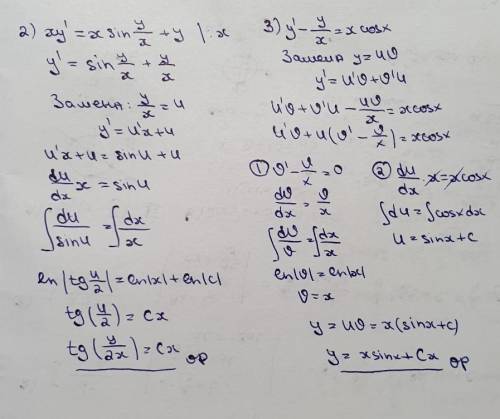 2) xy' = x sin y/x + y | : x
y' = sin y/x + y/x
Замена: y/x = u
y' = u'x + u
u'x + u = sin u + u
du/dx x = sin u
∫ du/sin u = ∫ dx/x
ln|tg u/2| = ln|x| + ln|C|
tg(u/2) = Cx
tg(y/2x) = Cx ор
3) y' - y/x = x cos x
Замена y = uv
y' = u'v + v'u
u'v + v'u - uv/x = x cos x
u'v + u(v' - v/x) = x cos x
① v' - v/x = 0
dv/dx = v/x
∫ dv/v = ∫ dx/x
ln|v| = ln|x|
v = x
② du/dx · x = x cos x
∫ du = ∫ cos x dx
u = sin x + C
y = uv = x(sin x + C)
y = x sin x + Cx ор